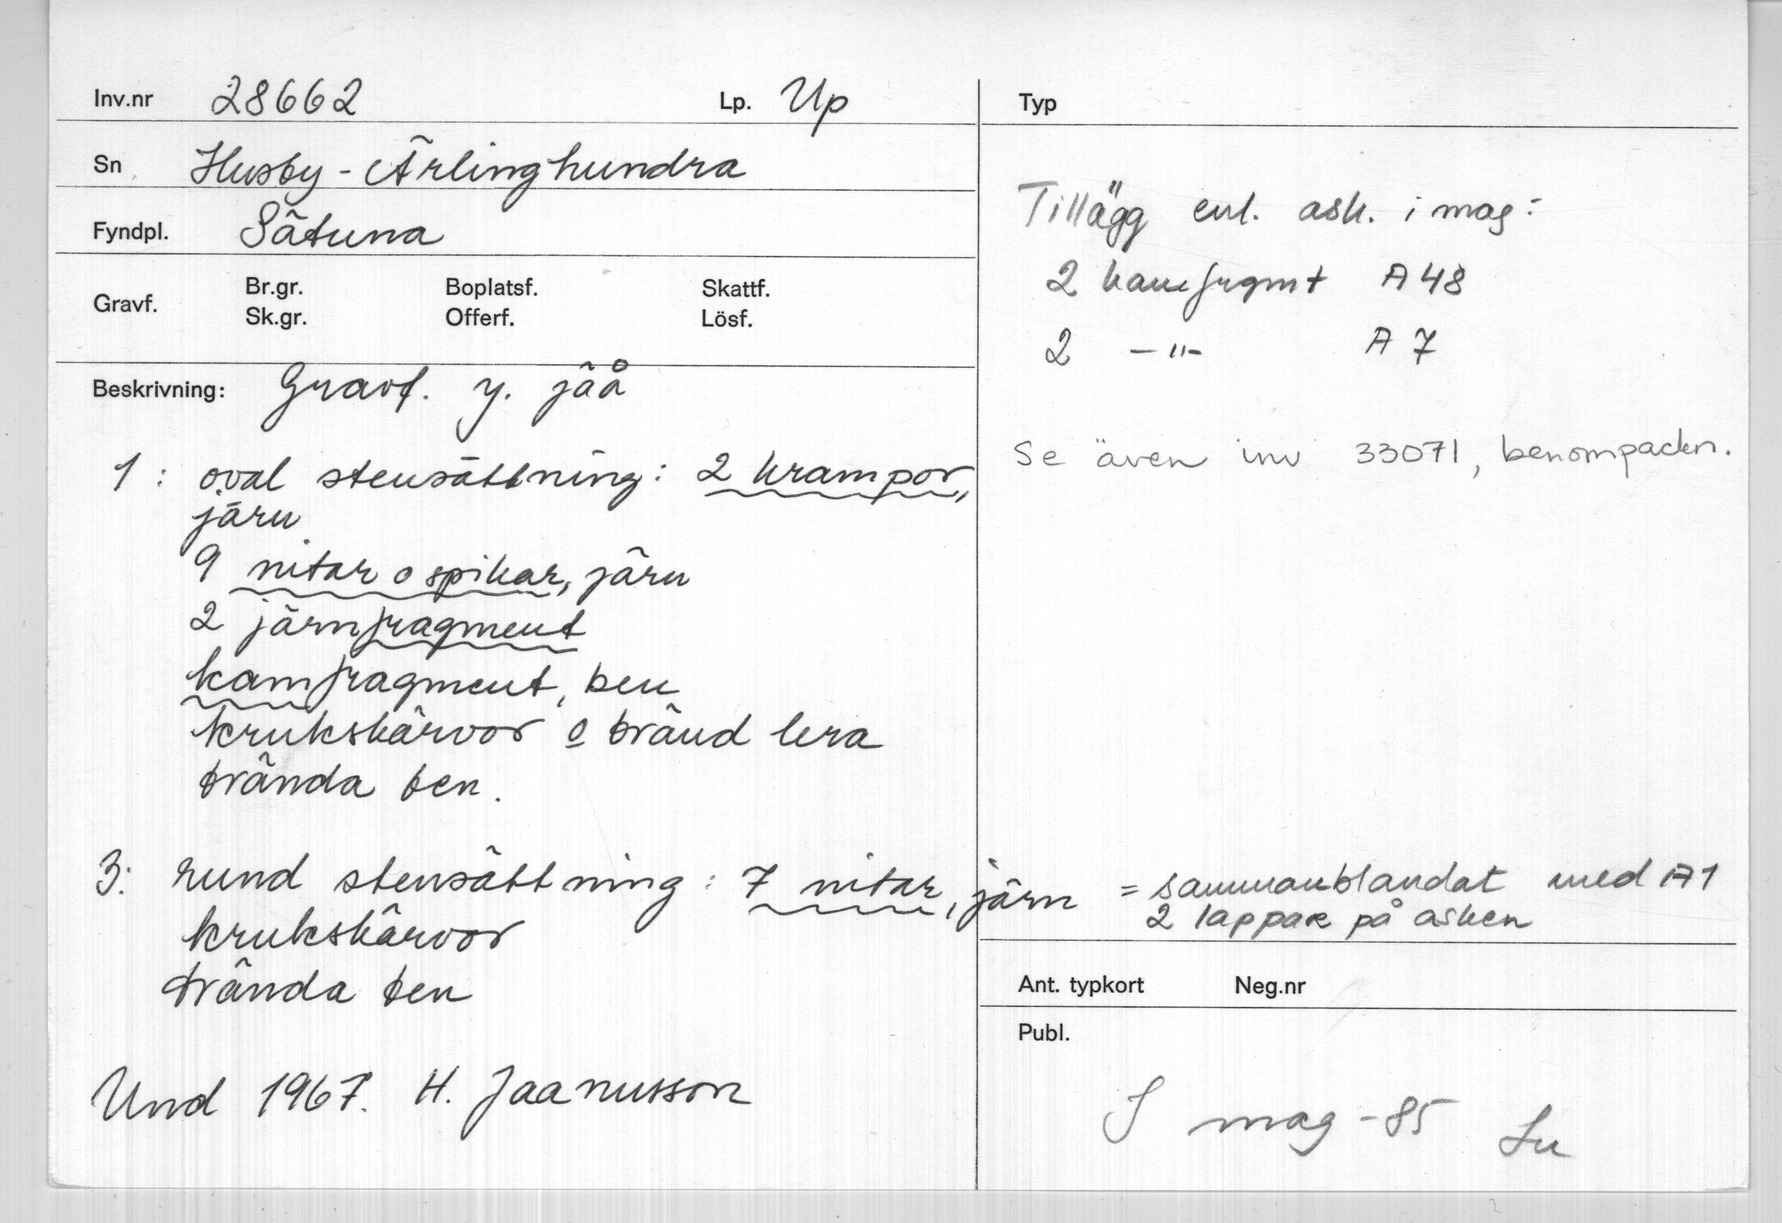 Inv.nr 28662 Lp. Up
Sn Husby-Ärlinghundra
Fyndpl. Såtuna
Gravf. Br.gr. Boplatsf. Skattf.
Sk.gr. Offerf. Lösf.
Beskrivning: Gravf. y. jåå
1: oval stensättning: 2 krampor,
järn
9 nitar o spikar, järn
2 järnfragment
kamfragment, ben
krukskärvor o bränd lera
brända ben.
3: rund stensättning: 7 nitar, järn = sammanblandat med A1
2 lappar på asken
krukskärvor
brända ben
Und 1967. H. Jaanusson
Typ
Tillägg enl. ask. i mag:
2 kamfrgmt A 48
2 –"– A 7
Se även inv 33071, benompackn.
Ant. typkort Neg.nr
Publ.
I mag -85